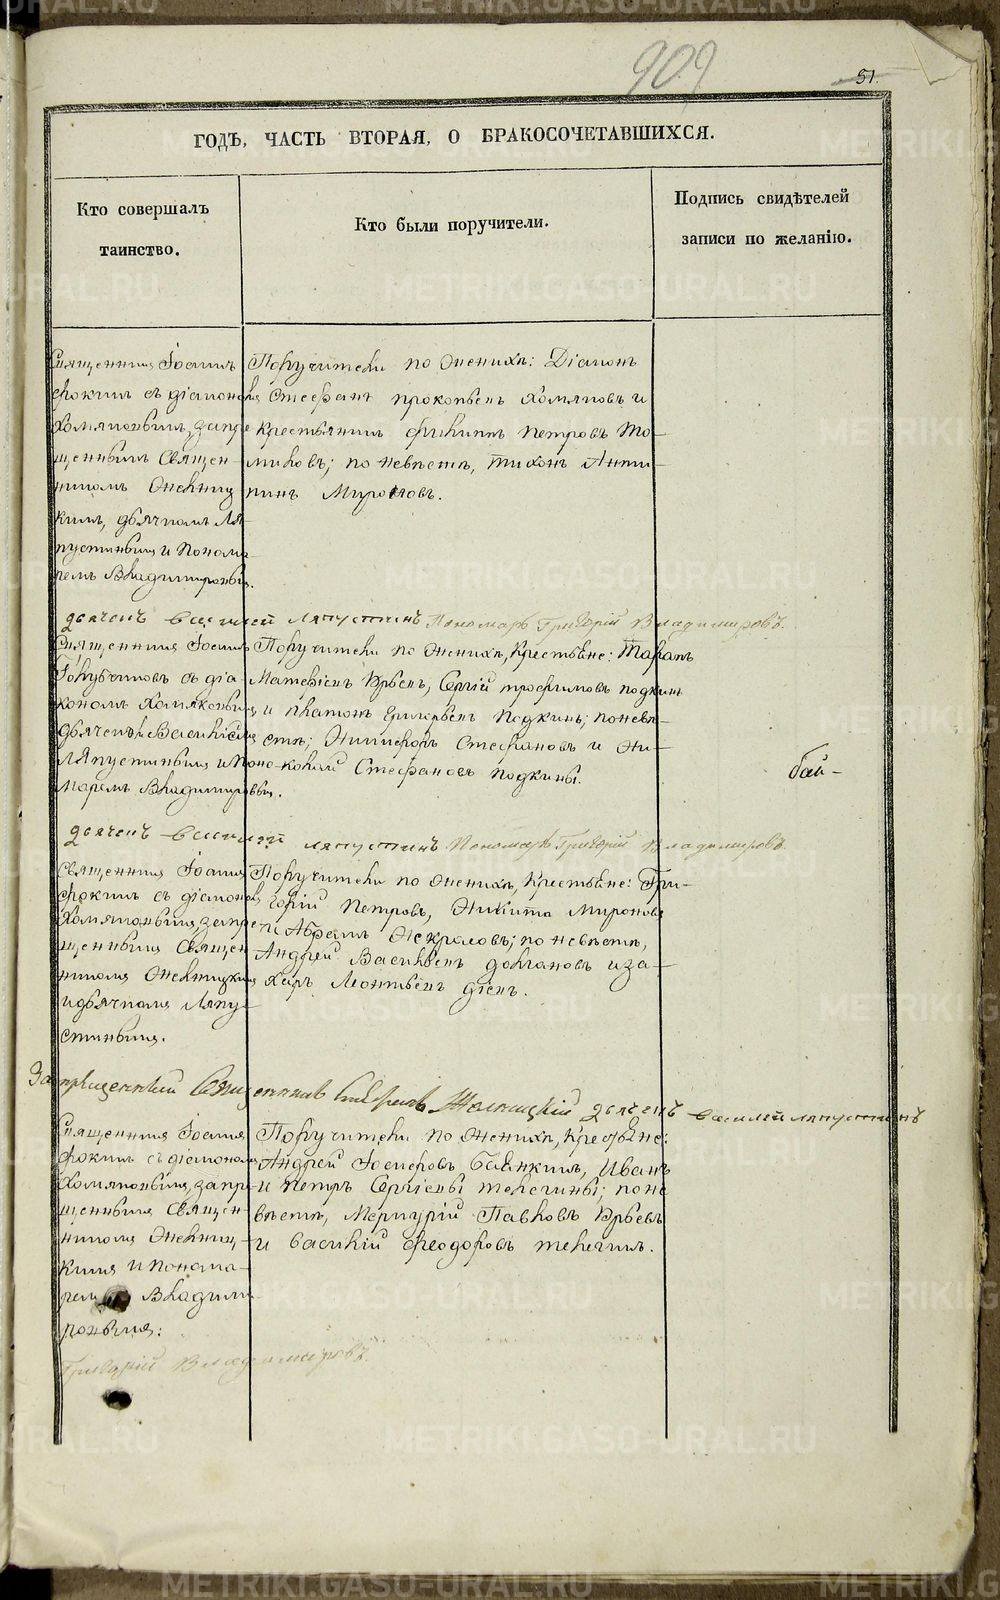 909
51.
ГОДЪ, ЧАСТЬ ВТОРАЯ, О БРАКОСОЧЕТАВШИХСЯ.
Кто совершалъ
таинство.
Кто были поручители.
Подпись свидѣтелей
записи по желанію.
Священникъ Іоаннъ
Фокинъ съ діакономъ
Хомяковымъ, запре-
щеннымъ Священ-
никомъ
кимъ, дьячкомъ Ля-
пустинымъ и Понома-
ремъ Владимировымъ.
Поручители по женихѣ: Діаконъ
Стефанъ Прокопьевъ Хомяковъ и
крестьянинъ Филиппъ Петровъ То-
миловъ; по невѣстѣ, Тихонъ Анти-
пинъ Мироновъ.
дьячекъ василей ляпустинъ Пономарь Григорій Владимировъ.
Священникъ Іоаннъ
Голубчиковъ съ діа-
кономъ Хомяковымъ
дьячекомъ Василіемъ
Ляпустинымъ и Поно-
маремъ Владимировымъ.
Поручители по женихѣ, Крестьяне: Тарапъ
Матвѣевъ Юрьевъ, Сергій Трофимовъ Подкинъ
и Платонъ Григорьевъ Подкинъ; по невѣ-
стѣ; Никифоръ Стефановъ и Ни-
колай Стефановъ Подкины.
бай-
дьячекъ василей ляпустинъ Пономарь Григорій Владимировъ.
Священникъ Іоаннъ
Фокинъ съ діакономъ
Хомяковымъ, запре-
щеннымъ Священ-
никомъ
и дьячкомъ Ляпу-
стинымъ.
Поручители по женихѣ, Крестьяне: Гри-
горій Петровъ, Никита Мироновъ
и Абрамъ Некрасовъ; по невѣстѣ,
Андрей Васильевъ Долгановъ и За-
харъ Леонтьевъ
Запрещенный Священникъ дьячекъ василей ляпустинъ
Священникъ Іоаннъ
Фокинъ съ діакономъ
Хомяковымъ, запре-
щеннымъ Священ-
никомъ
кимъ и Понома-
ремъ Владими-
ровымъ:
Поручители по женихѣ, Крестьяне:
Андрей Іосифовъ Иванъ
и Петръ Сергіевы Телегины; по не-
вѣстѣ, Меркурій Павловъ Юрьевъ
и Василій Феодоровъ Телегинъ.
Григорій Владимировъ.
METRIKI.GASO-URAL.RU